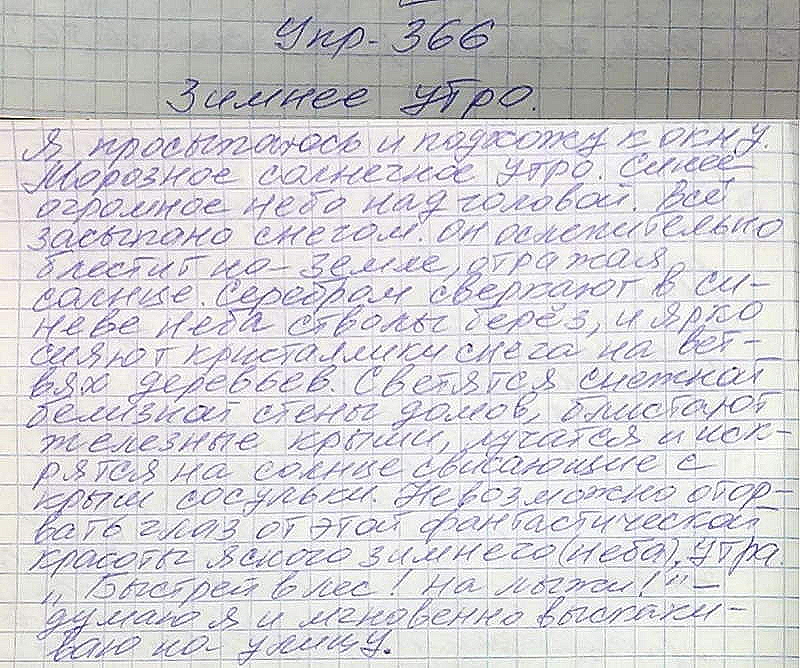 Упр-366
Зимнее утро.
Я просыпаюсь и подхожу к окну.
Морозное солнечное утро. Синее
огромное небо над головой. Всё
засыпано снегом. Он ослежительно
блестит на земле, отражая
солнце. Серебром сверкают в си-
неве неба стволы берёз, и ярко
сияют кристаллики снега на вет-
вях деревьев. Светятся снежной
белизной стены домов, блистают
железные крыши, лучатся и иск-
рятся на солнце свисающие с
крыш сосульки. Невозможно отор-
вать глаз от этой фантастической
красоты ясного зимнего (неба), утра.
"Быстрей в лес! На лыжи!" -
думаю я и мгновенно выскаки-
ваю на улицу.